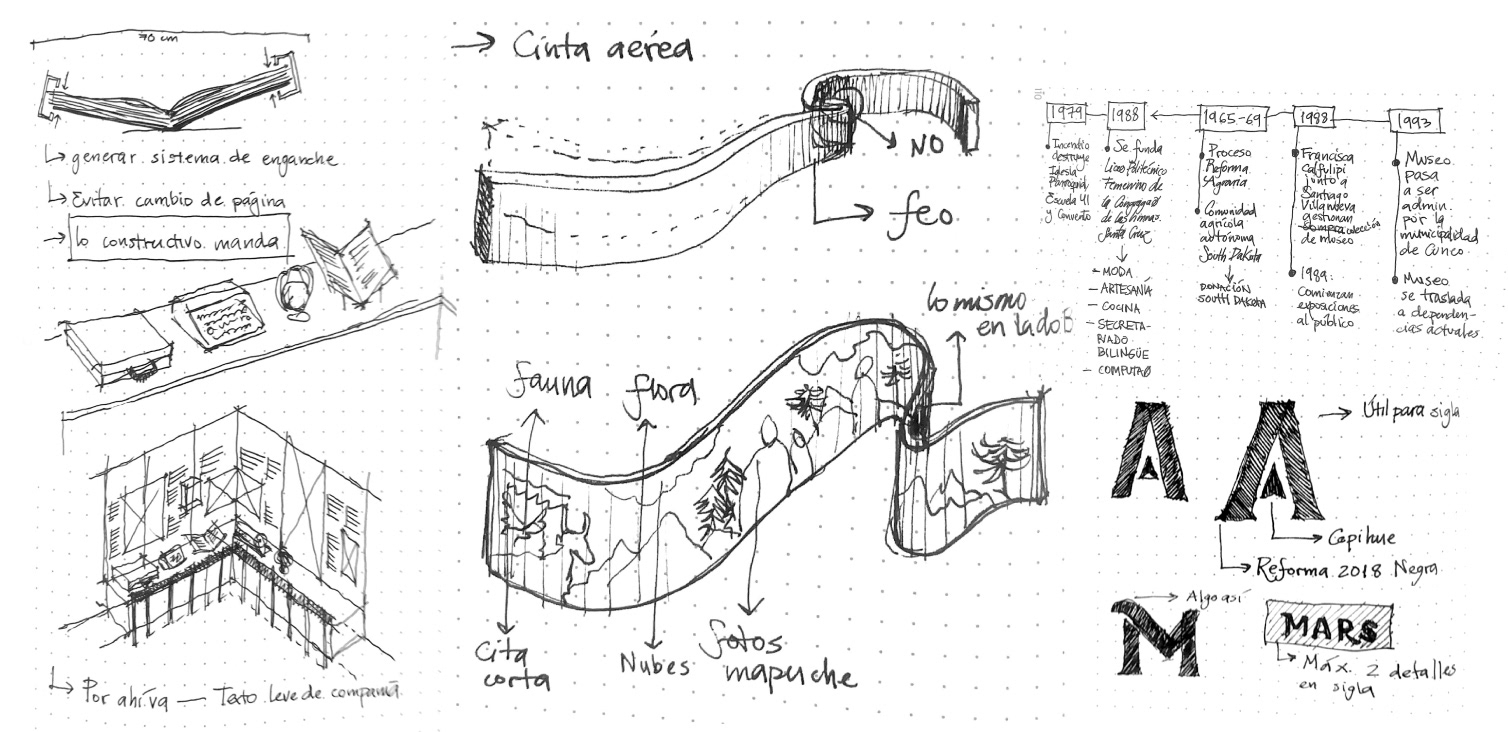 70 cm
generar sistema de enganche
Evitar cambio de página
lo constructivo manda
Por ahí va — Texto leve de compañía
Cinta aérea
NO
feo
lo mismo
en lado B
fauna
flora
Cita
corta
Nubes
fotos
mapuche
1979
Incendio
destruye
Iglesia
Parroquial
Escuela 41
y Convento
1988
Se funda
Liceo Politécnico
Femenino de
la Congregac
de las Hnas.
Santa Cruz
- MODA
- ARTESANÍA
- COCINA
- SECRETA-
RIADO
BILINGÜE
- COMPUTAC
1965-69
Proceso
Reforma
Agraria
Comunidad
agrícola
autónoma
South Dakota
DONACIÓN
SOUTH DAKOTA
1988
Francisca
Calfulipi
junto a
Santiago
Villanueva
gestionan
compra colección
de museo
1989:
Comienzan
exposiciones
al público
1993
Museo
pasa
a ser
admin.
por la
municipalidad
de Cunco
Museo
se traslada
a dependen-
cias actuales.
A A
Útil para sigla
Copihue
Reforma 2018 Negra
M
Algo así
MARS
Máx. 2 detalles
en sigla